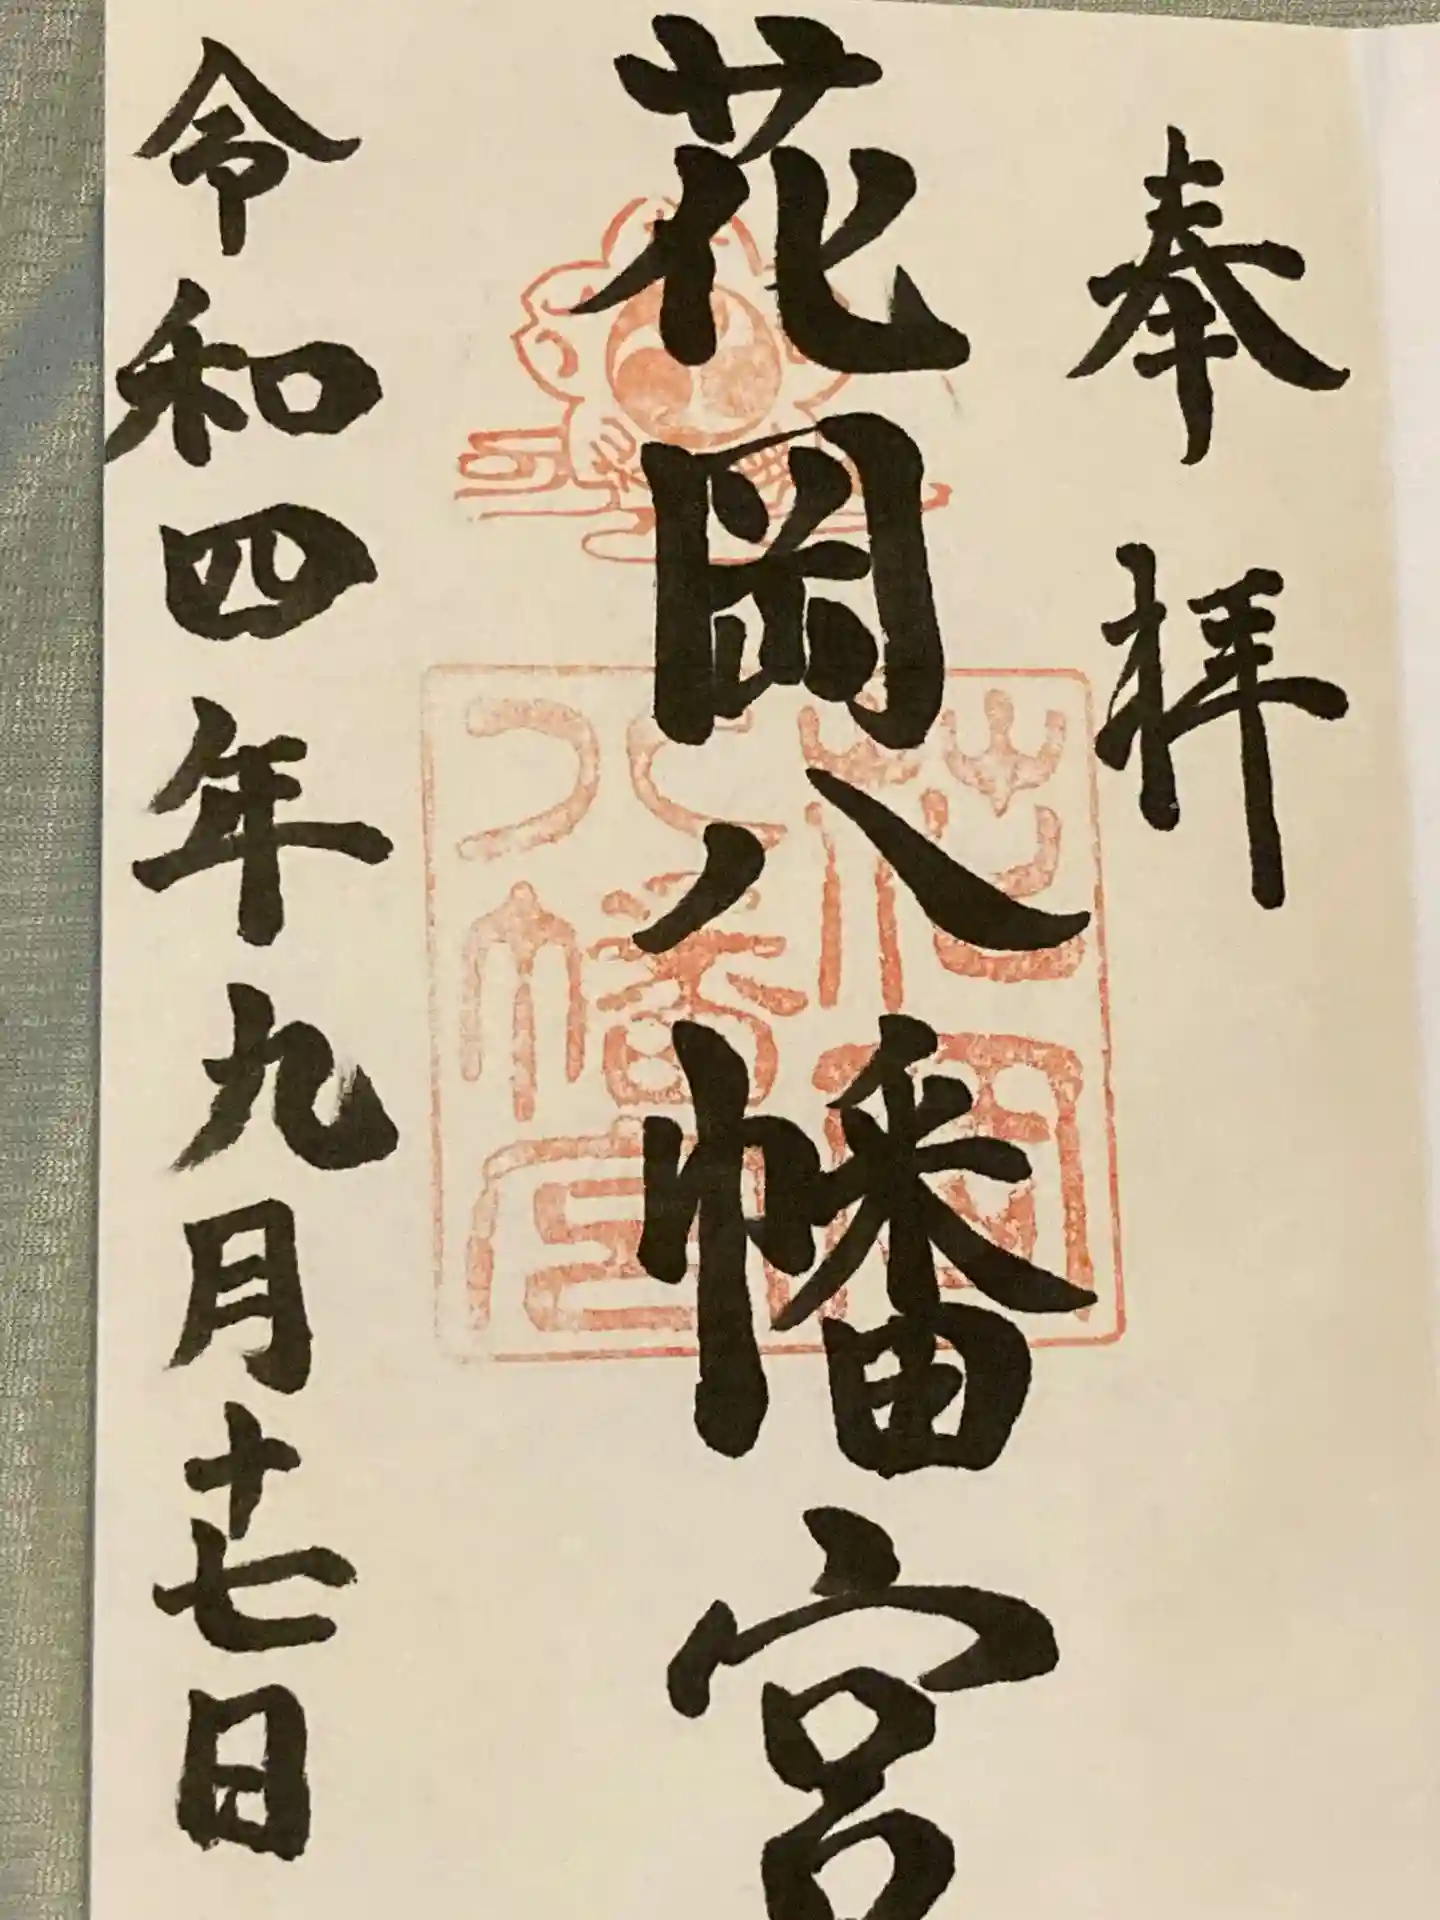 奉拝
花岡八幡宮
花岡八幡宮
令和四年九月十七日